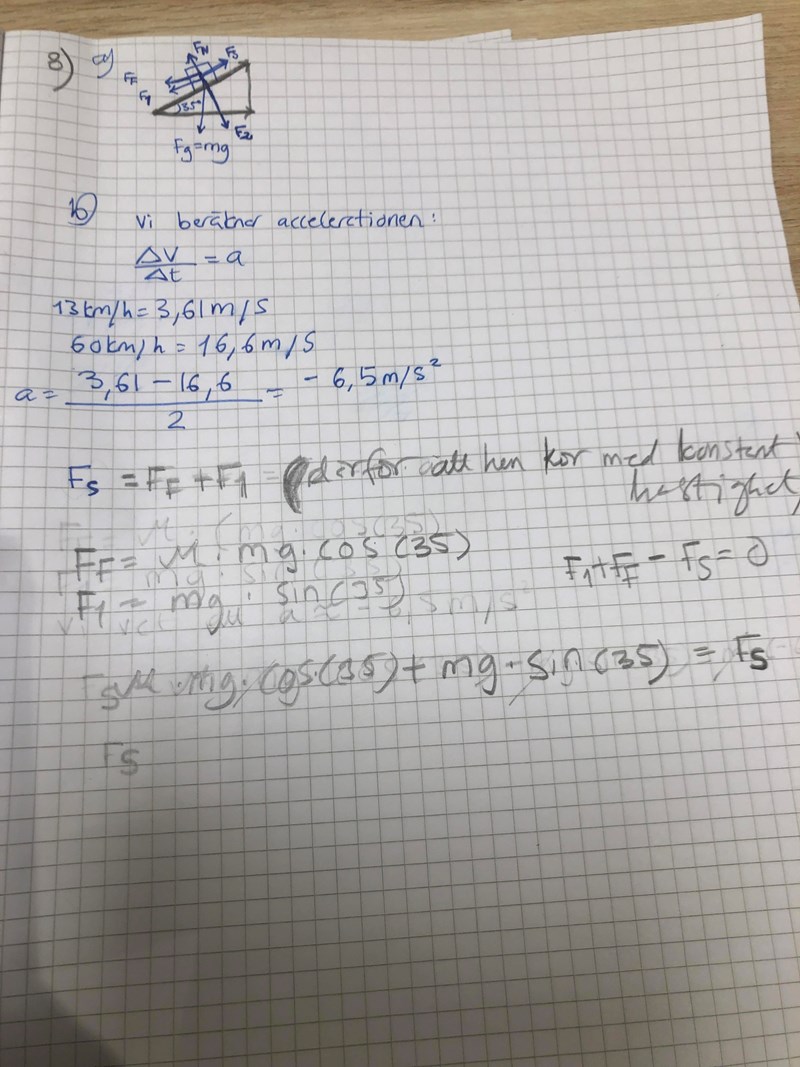 8) a)
FN
Fs
FF
F1
35°
F2
Fg=mg
b)
Vi beräknar accelerationen:
ΔV/Δt = a
13km/h = 3,61m/s
60km/h = 16,6m/s
a = (3,61 - 16,6)/2 = - 6,5m/s²
Fs = FF + F1 = därför att hen kör med konstant
hastighet,
FF = μ · mg · cos(35)
F1 + FF - Fs = 0
F1 = mg · sin(35)
μ · mg · cos(35) + mg · sin(35) = Fs
Fs